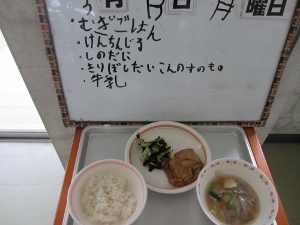 月 日 曜日
・むぎごはん
・けんちんじる
・しのだに
・きりぼしだいこんのすのもの
・牛乳